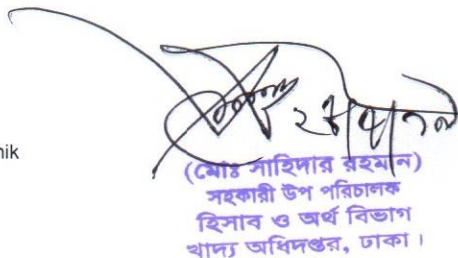 nik
(মোঃ সাহিদার রহমান)
সহকারী উপ পরিচালক
হিসাব ও অর্থ বিভাগ
খাদ্য অধিদপ্তর, ঢাকা।